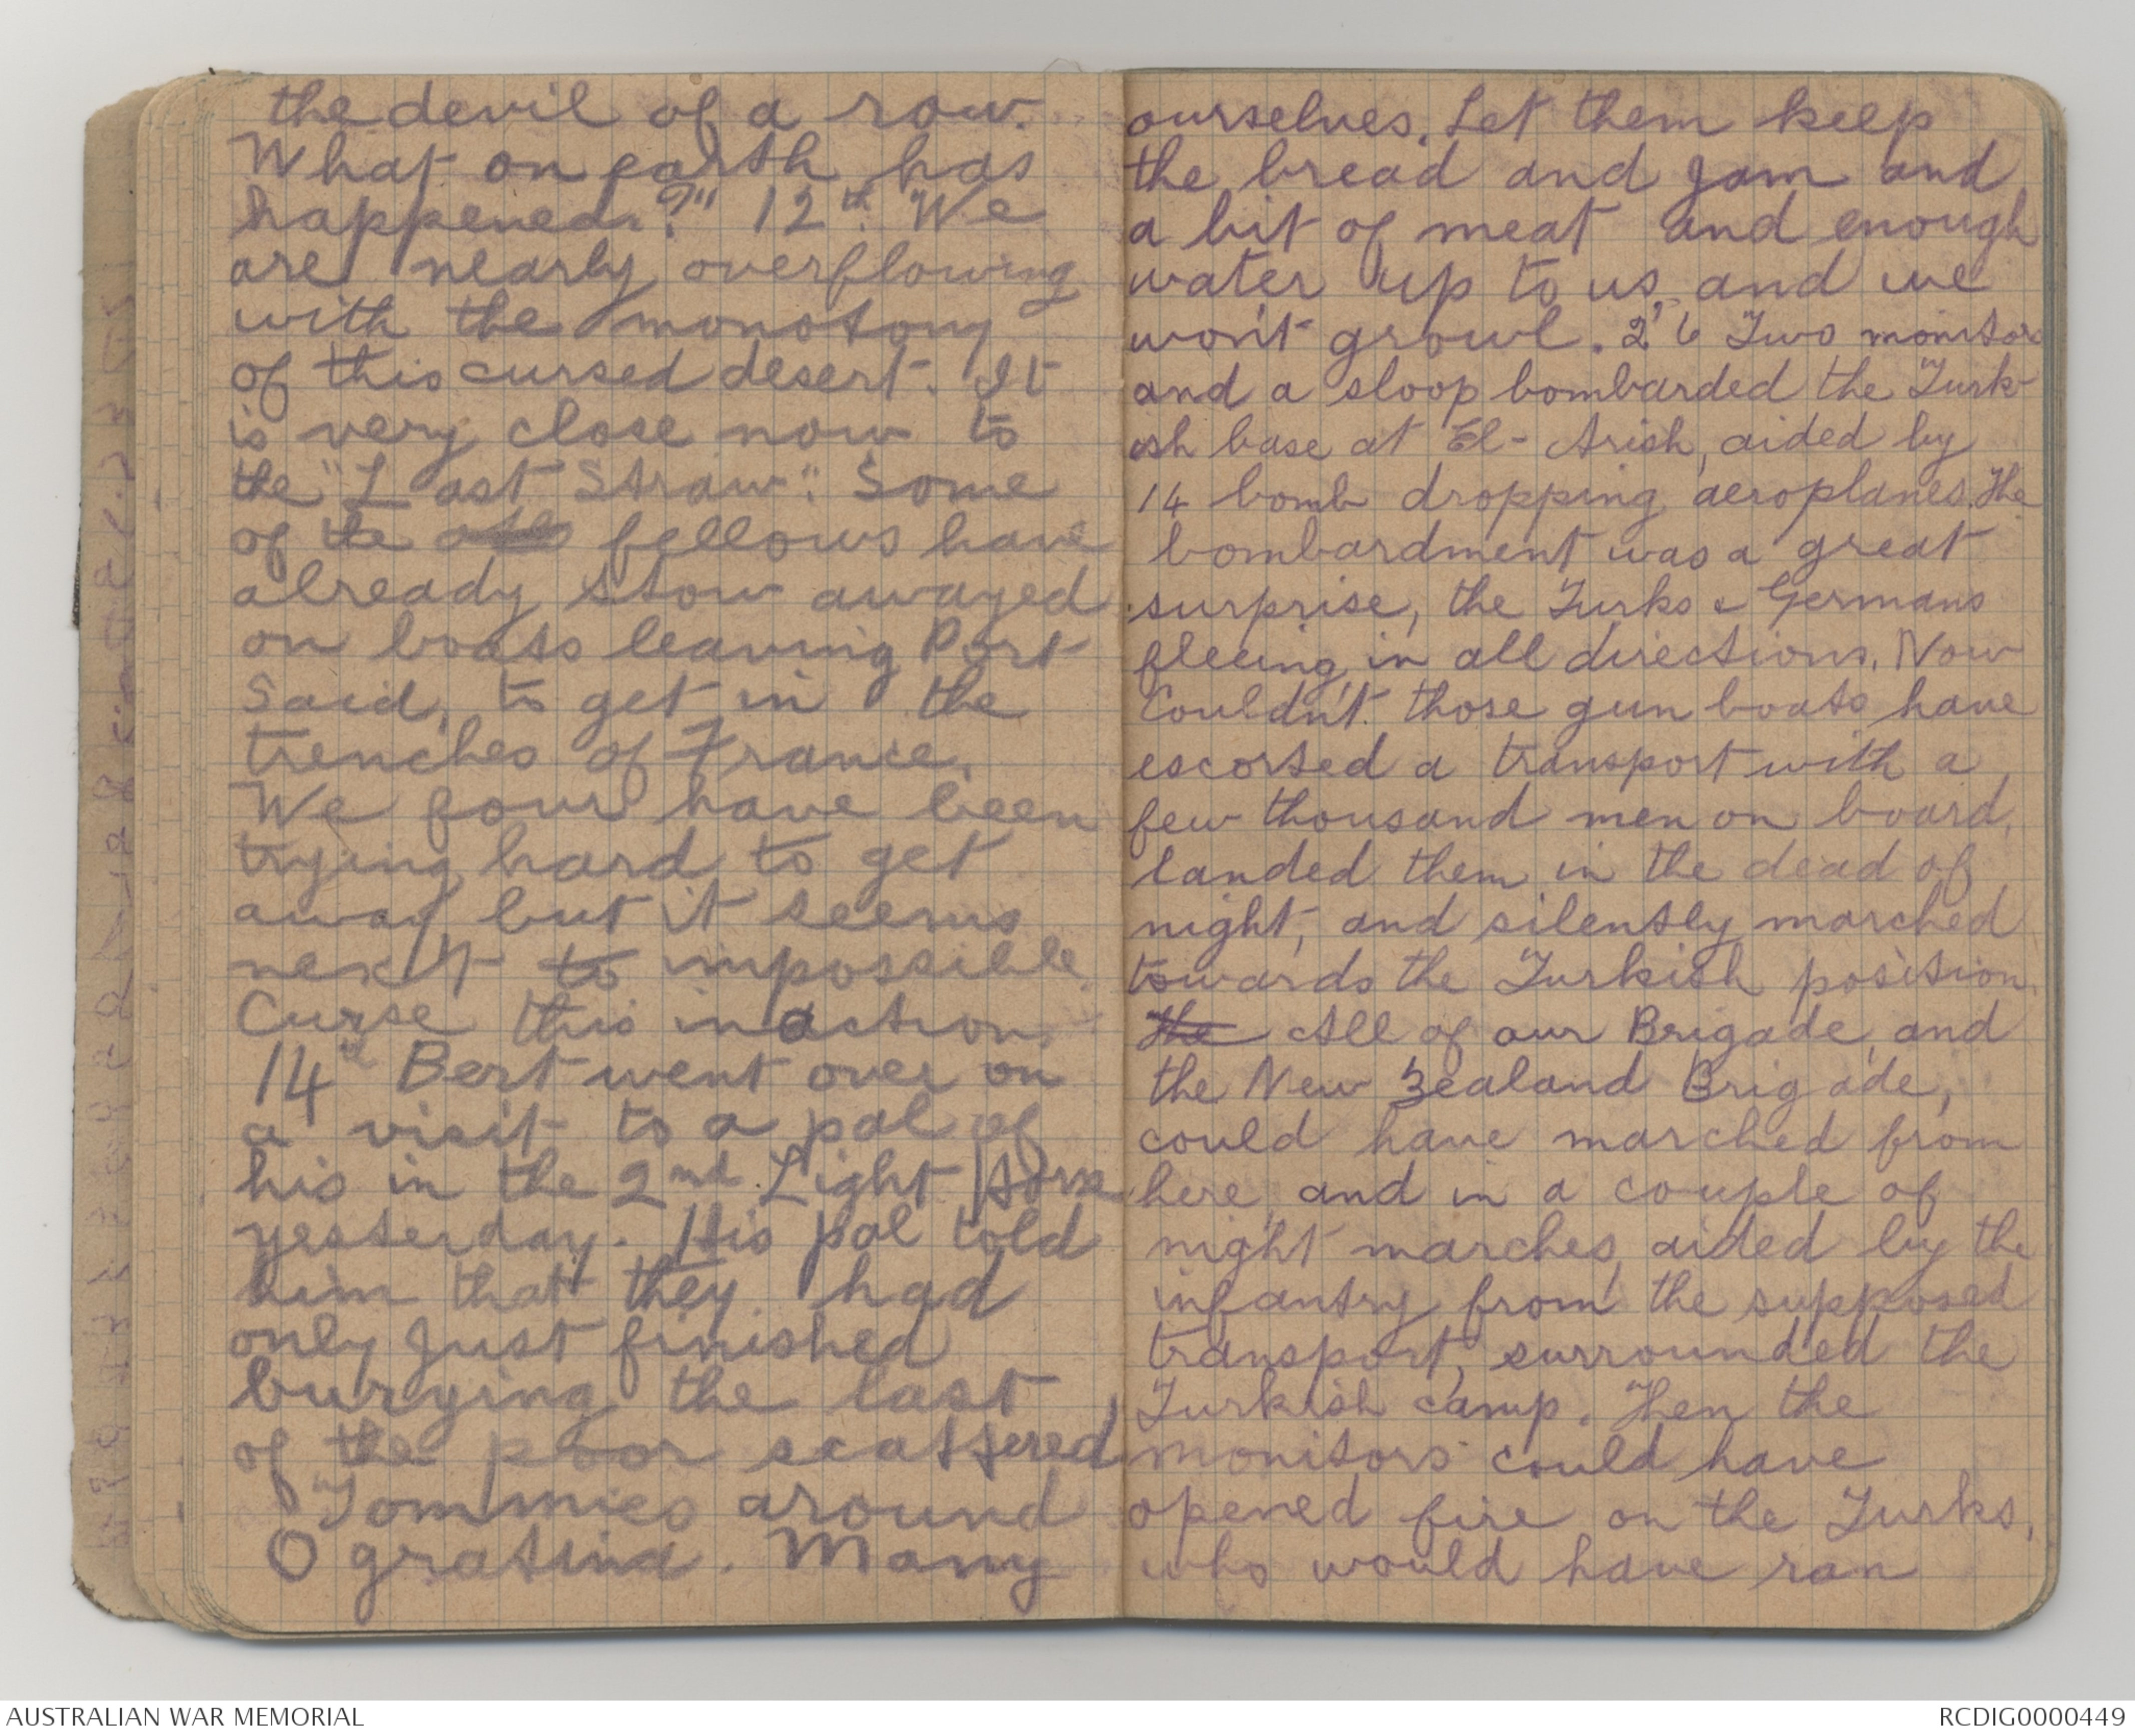 the devil of a row.
What on earth has
happened.?" 12th. We
are nearly overflowing
with the monotony
of this cursed desert. It
is very close now to
the "Last Straw". Some
of the fellows have
already stow awayed
on boats leaving Port
Said, to get in the
trenches of France.
We four have been
trying hard to get
away but it seems
next to impossible.
Curse this inaction.
14th Bert went over on
a visit to a pal of
his in the 2nd. Light Horse
yesterday. His pal told
him that they. had
only just finished
burying the last
of the poor scattered
Tommies around
Ogratina. Many
ourselves. Let them keep
the bread and jam and
a bit of meat and enough
water up to us, and we
won't growl. Two monitors
and a sloop bombarded the Turk-
ish base at El-Arish, aided by
14 bomb dropping aeroplanes. The
bombardment was a great
surprise, the Turks & Germans
fleeing in all directions. Now
Couldn't those gun boats have
escorted a transport with a
few thousand men on board,
landed them in the dead of
night, and silently marched
towards the Turkish position.
The All of our Brigade, and
the New Zealand Brigade,
could have marched from
here, and in a couple of
night marches, aided by the
infantry from the supposed
transport, surrounded the
Turkish camp. Then the
monitors could have
opened fire on the Turks,
who would have ran
AUSTRALIAN WAR MEMORIAL
RCDIG0000449